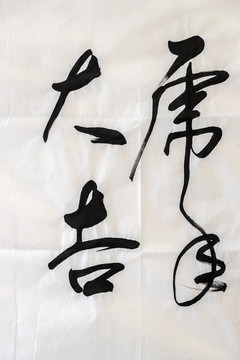 虎年
大吉